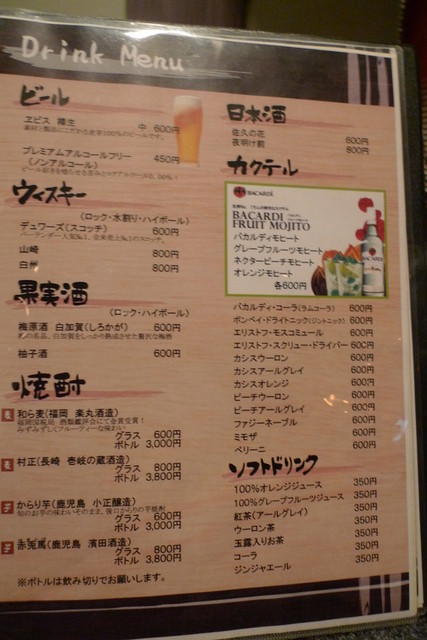 Drink Menu
ビール
ヱビス 樽生 中 600円
プレミアムアルコールフリー
(ノンアルコール) 450円
ウィスキー
(ロック・水割り・ハイボール)
デュワーズ(スコッチ) 600円
山崎 800円
白州 800円
果実酒
(ロック・ハイボール)
梅原酒 白加賀(しろかが) 600円
柚子酒 600円
焼酎
麦 和ら麦(福岡 楽丸酒造)
グラス 600円
ボトル 3,000円
麦 村正(長崎 壱岐の蔵酒造)
グラス 800円
ボトル 3,800円
芋 からり芋(鹿児島 小正醸造)
グラス 600円
ボトル 3,000円
芋 赤兎馬(鹿児島 濱田酒造)
グラス 800円
ボトル 3,800円
※ボトルは飲み切りでお願いします。
日本酒
佐久の花 600円
夜明け前 800円
カクテル
BACARDI
BACARDI
FRUIT MOJITO
バカルディモヒート
グレープフルーツモヒート
ネクターピーチモヒート
オレンジモヒート
各600円
バカルディ・コーラ(ラムコーラ) 600円
ボンベイ・ドライトニック(ジントニック) 600円
エリストフ・モスコミュール 600円
エリストフ・スクリュー・ドライバー 600円
カシスウーロン 600円
カシスアールグレイ 600円
カシスオレンジ 600円
ピーチウーロン 600円
ピーチアールグレイ 600円
ファジーネーブル 600円
ミモザ 600円
ベリーニ 600円
ソフトドリンク
100%オレンジジュース 350円
100%グレープフルーツジュース 350円
紅茶(アールグレイ) 350円
ウーロン茶 350円
玉露入りお茶 350円
コーラ 350円
ジンジャエール 350円